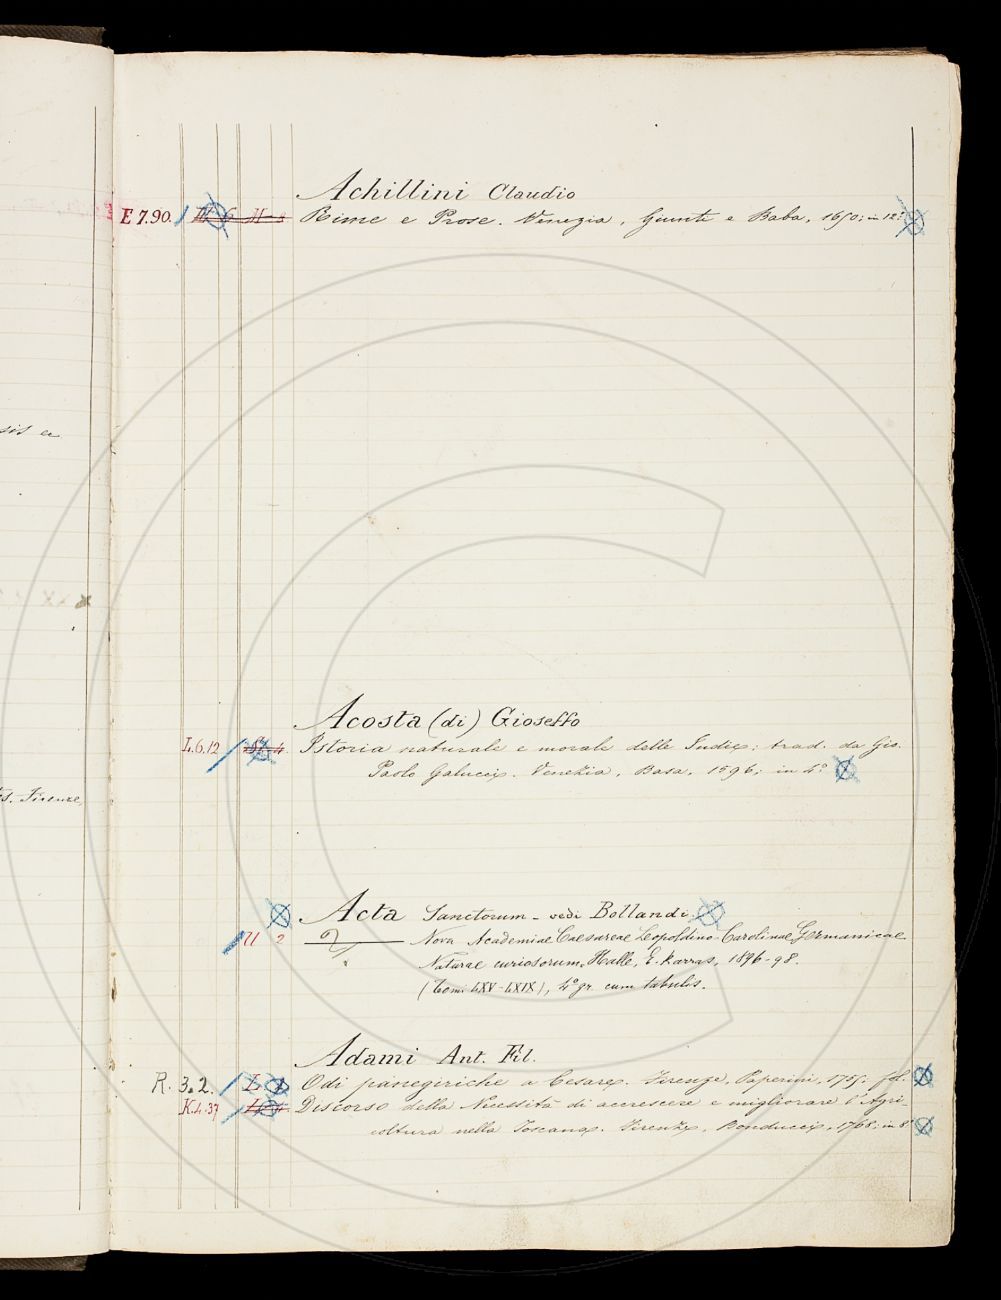 Achillini Claudio
E 7.90. Rime e Prose. Venezia, Giunti e Baba, 1650; in 12°
sis ac
Acosta (di) Gioseffo
L.6.12 Istoria naturale e morale delle Indie; trad. da Gio.
Paolo Galucci. Venezia, Basa, 1596; in 4°
Firenze,
Acta Sanctorum - vedi Bollandi
U 2 Nova Academiae Caesareae Leopoldino-Carolinae Germanicae
Naturae curiosorum. Halle, E. Karras, 1896-98.
(Tomi LXV-LXIX), 4° gr. cum tabulis.
Adami Ant. Fil.
R. 3.2. Odi panegiriche a Cesare. Firenze, Paperini, fol.
K.4.37 Discorso della Necessità di accrescere e migliorare l'Agri-
coltura nella Toscana. Firenze, Bonducci, 1768; in 8°